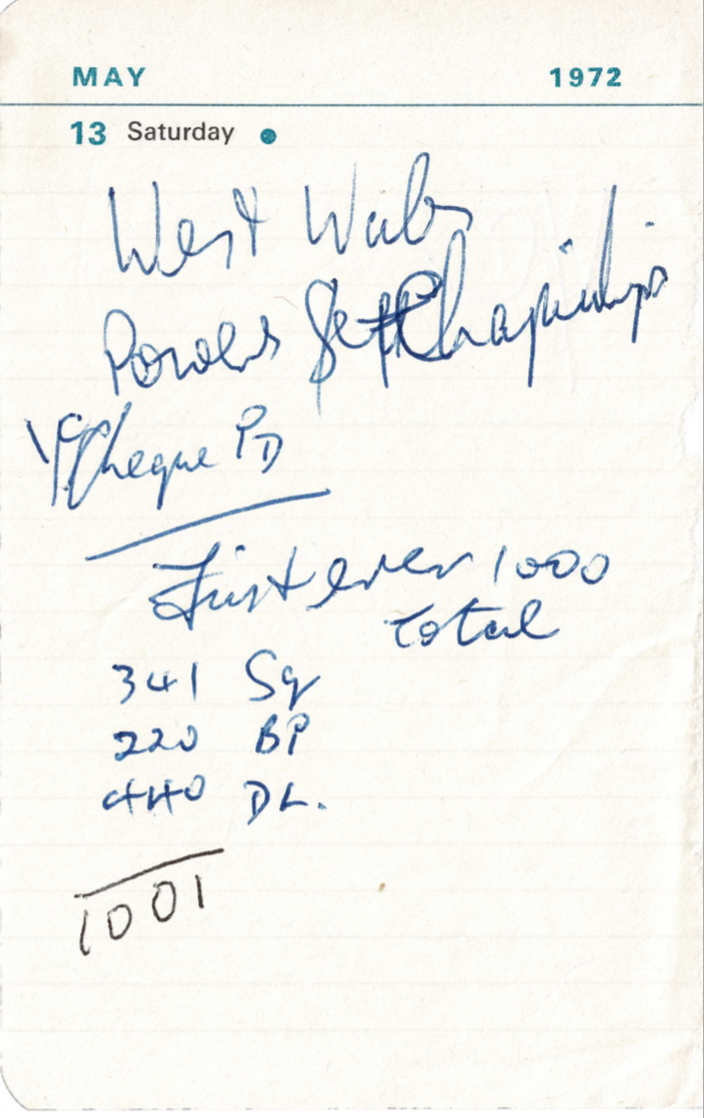 MAY 1972
13 Saturday
West Wales
Powers Set Championships
Cheque PD
First ever 1000
total
341 Sq
220 BP
440 DL.
1001